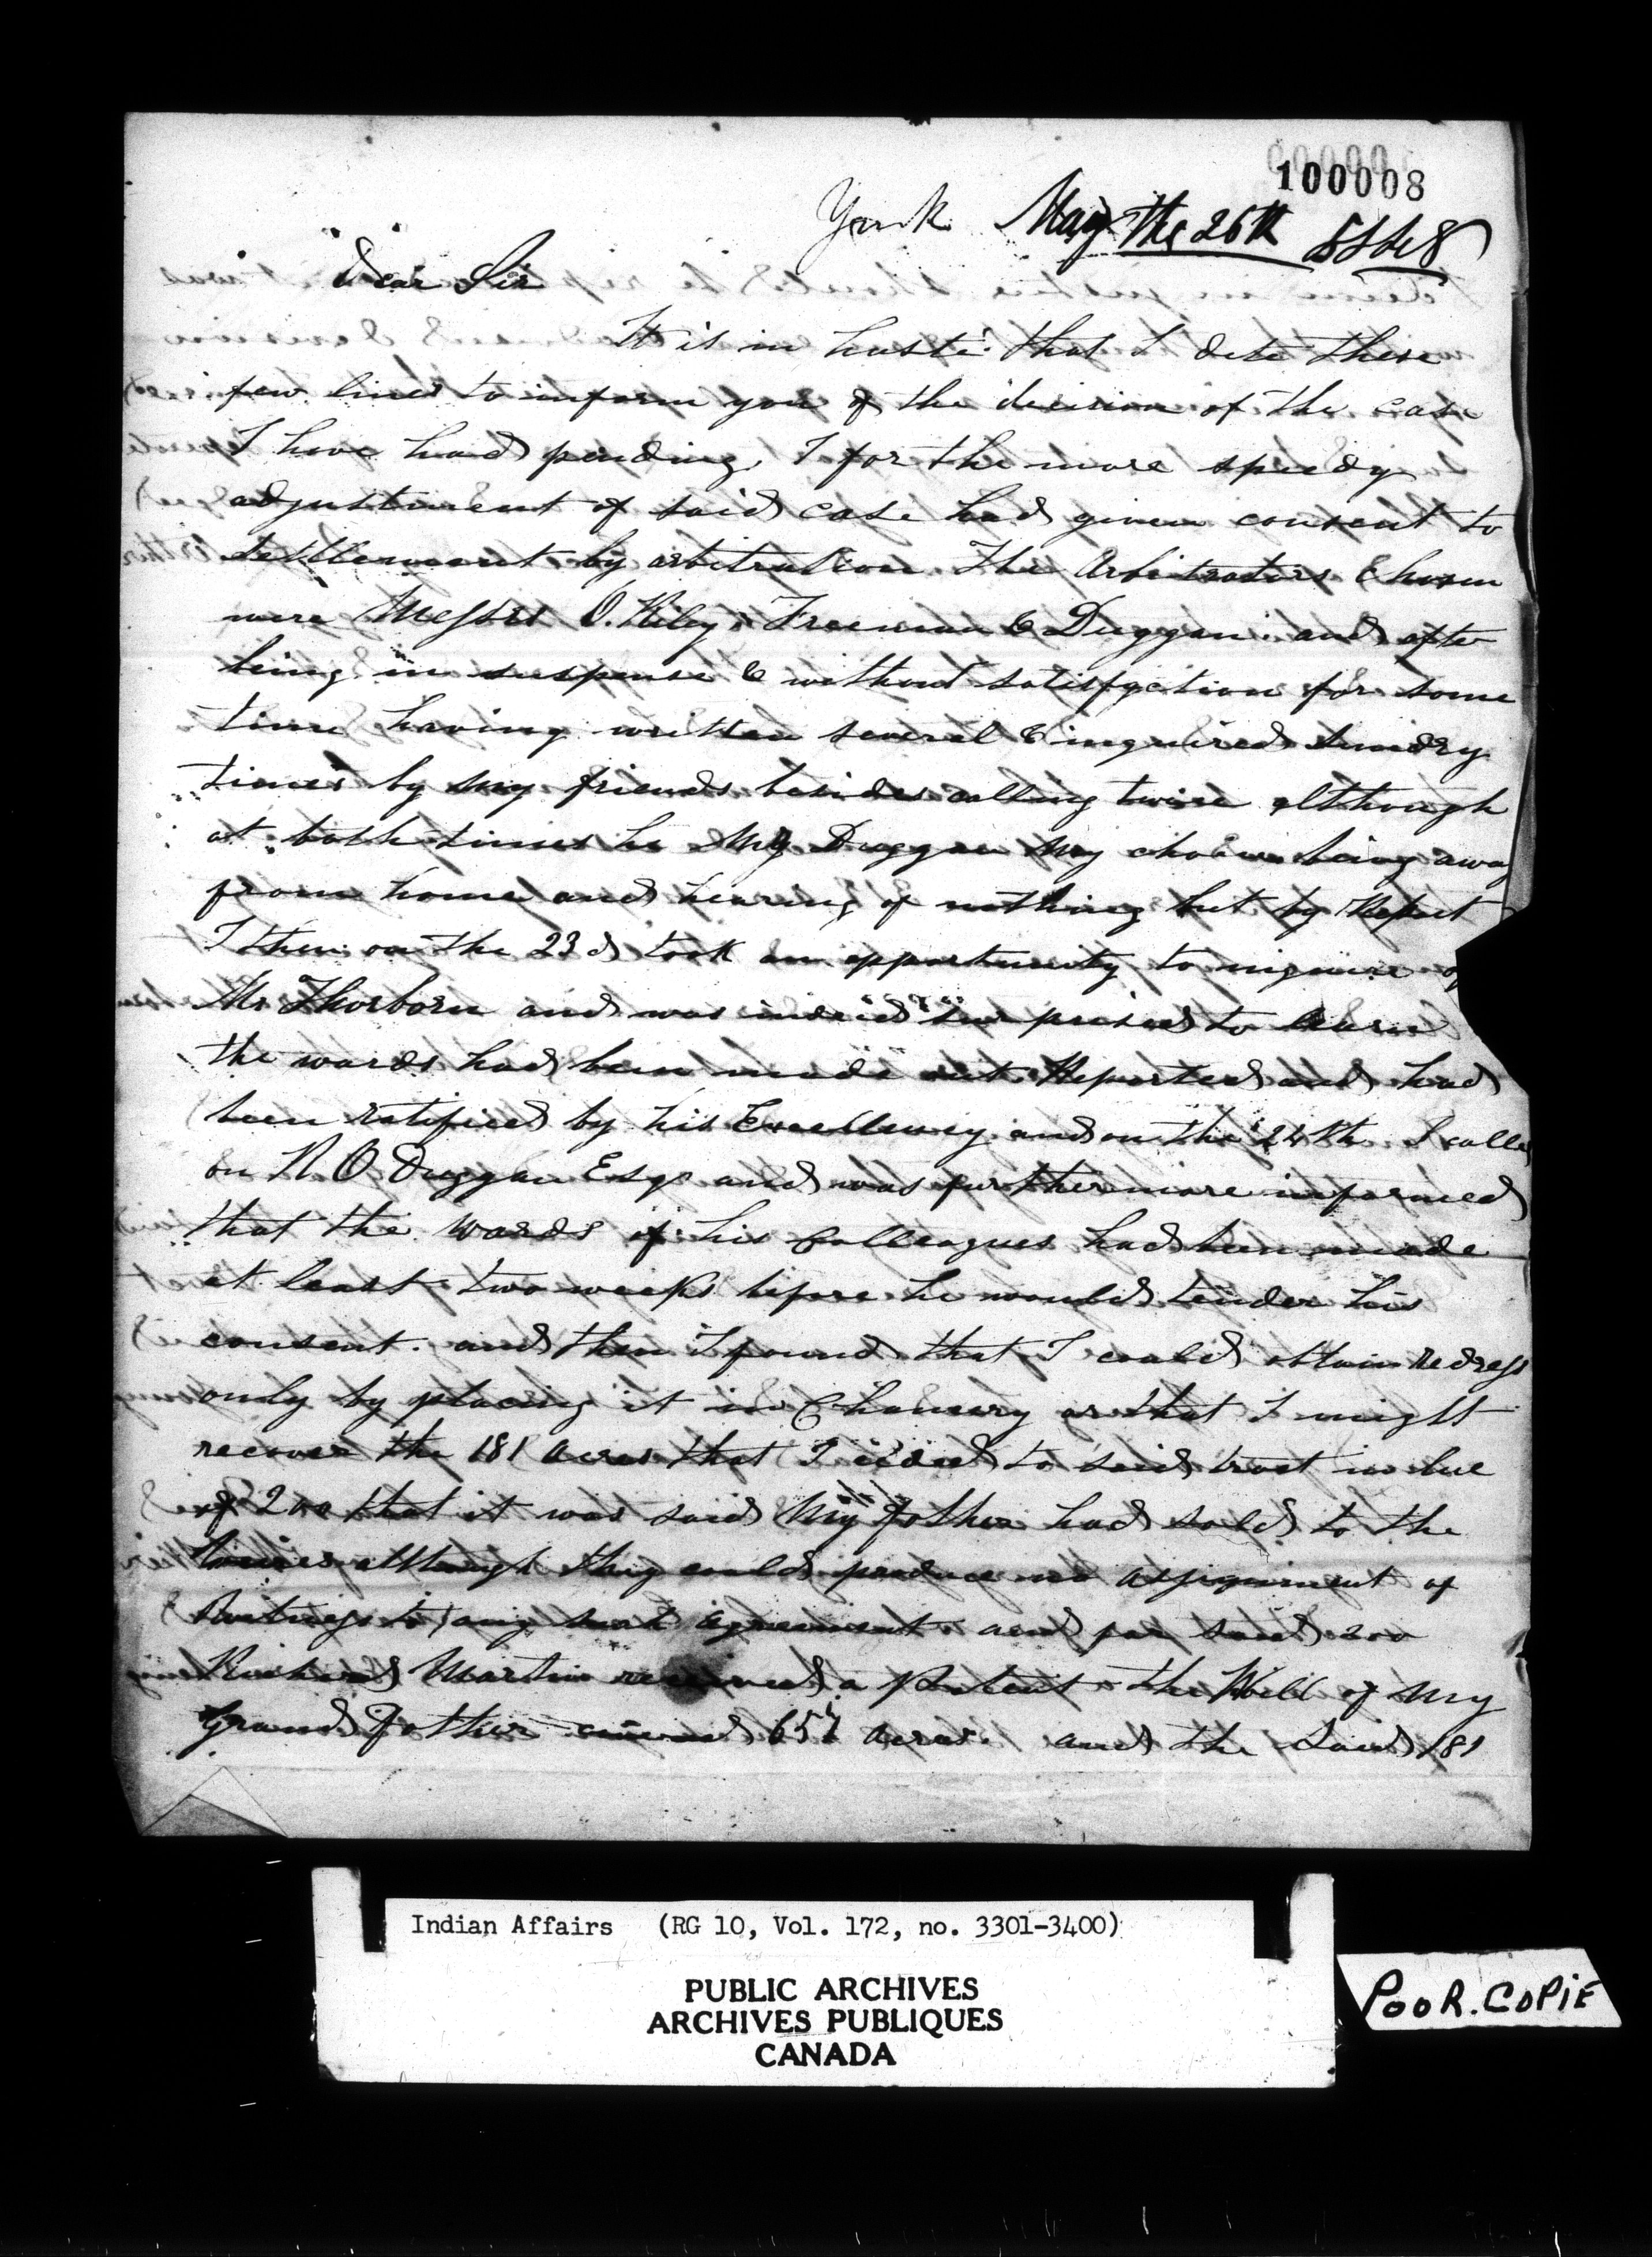 100008
York May the 26th 1848
Dear Sir
It is in haste that I dete these
few lines to inform you of the decision of the case
I have had pending, I for the more speedy
adjustment of said case had given consent to
settlement by arbitration The Arbitrators Chosen
were Messrs O. Riley Freeman & Duggan and after
being in suspense & without satisfaction for some
time having written several & inquired sundry
times by my friends besides calling twice although
at both times he Mr Duggan my being away
from home and hearing of nothing but by Report
I then on the 23d took an opportunity to inquire of
Mr Thorborn and was indeed surprised to learn
the wards had been made out Reported and had
been ratified by his Excellency and on the 24th I called
on R. O Duggan Esqr and was furthermore informed
that the wards of his Colleagues had been made
at least two weeks before he would tender his
consent. and then I found that I could obtain Redress
only by placing it in Chancery or that I might
recover the 181 acres that I ceded to said trust in lue
of 200 that it was said My Father had sold to the
although they could produce no assignment of
to any such agreement and for said 200
Richard Martin received a Patent the Will of My
Grand Father 657 acres. and the said 181
Indian Affairs (RG 10, Vol. 172, no. 3301-3400)
PUBLIC ARCHIVES
ARCHIVES PUBLIQUES
CANADA
POOR. COPIE